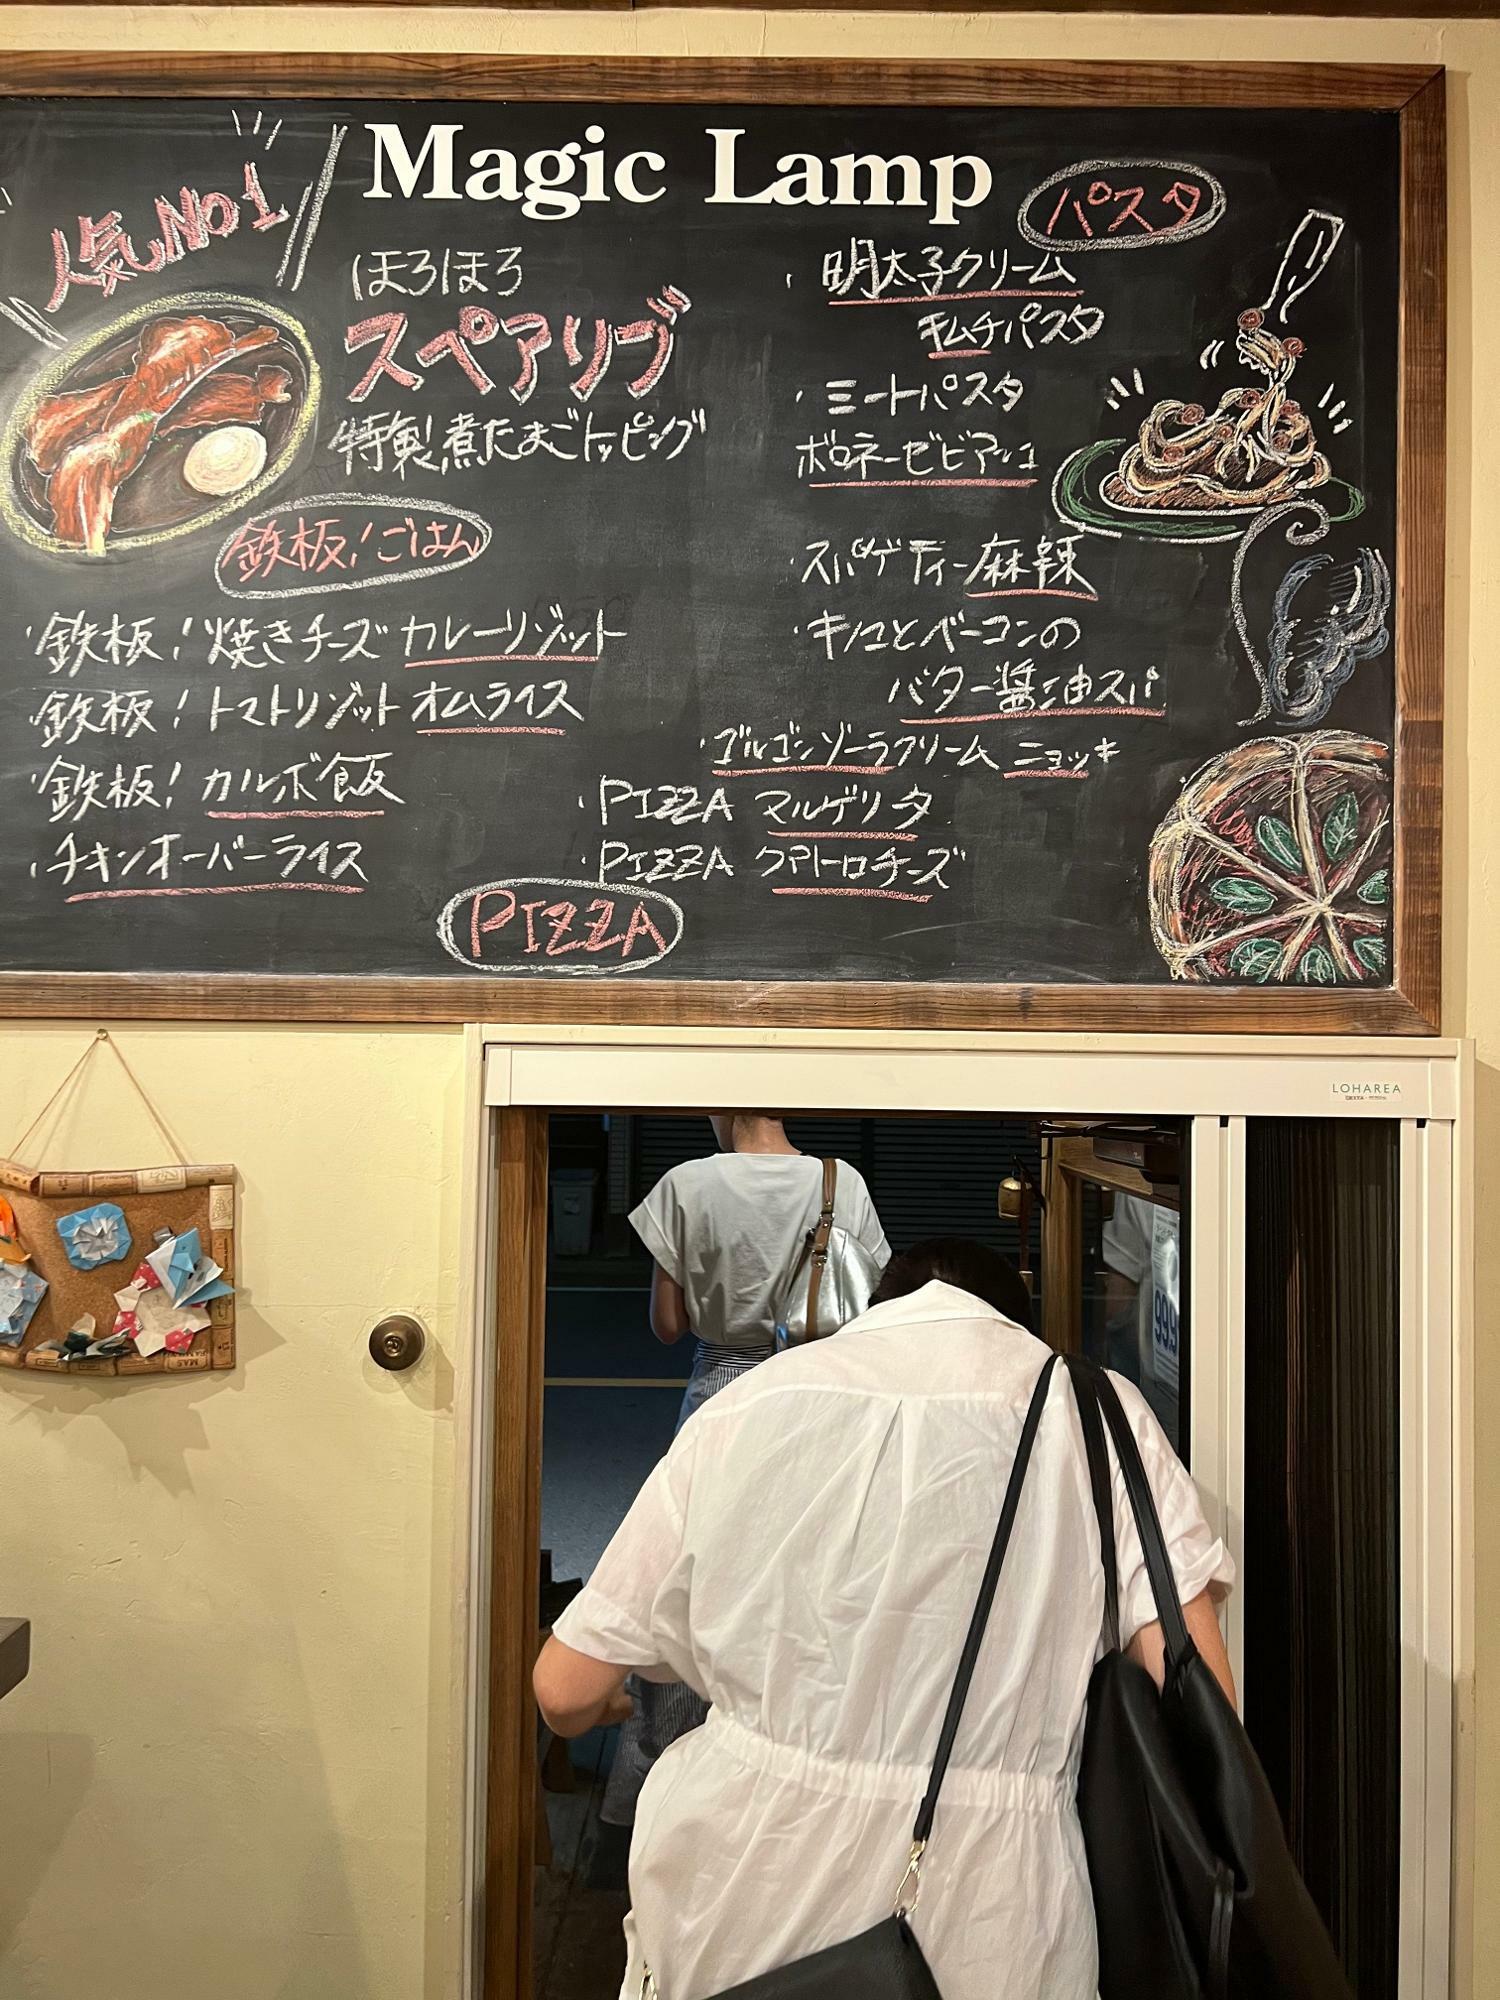 Magic Lamp
人気NO1
ほろほろ
スペアリブ
特製煮たまごトッピング
鉄板!ごはん
・鉄板!焼きチーズカレーリゾット
・鉄板!トマトリゾットオムライス
・鉄板!カルボ飯
・チキンオーバーライス
パスタ
・明太子クリーム
キムチパスタ
・ミートパスタ
ボロネーゼビアンコ
・スパゲティー麻辣
・キノコとベーコンの
バター醤油スパ
・ゴルゴンゾーラクリームニョッキ
・PIZZA マルゲリータ
・PIZZA クアトロチーズ
PIZZA
LOHAREA